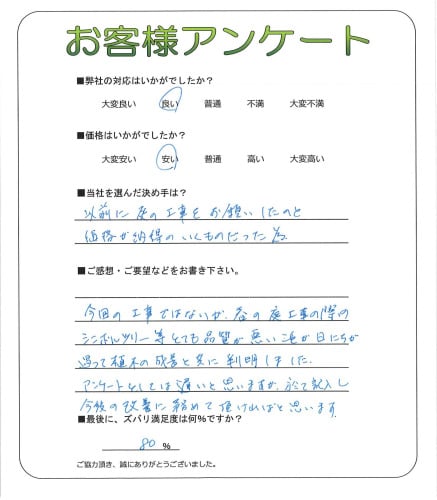 お客様アンケート
■弊社の対応はいかがでしたか？
大変良い 良い 普通 不満 大変不満
■価格はいかがでしたか？
大変安い 安い 普通 高い 大変高い
■当社を選んだ決め手は？
以前に庭の工事をお願いしたのと
価格が納得のいくものだった為
■ご感想・ご要望などをお書き下さい。
今回の工事ではないが、春の庭工事の際の
シンボルツリー等とても品質が悪い事が日にちが
過って植木の成長と共に判明しました。
アンケートとしては遅いと思いますが、記入し
今後の改善に努めて頂ければと思います
■最後に、ズバリ満足度は何％ですか？
80 %
ご協力頂き、誠にありがとうございました。